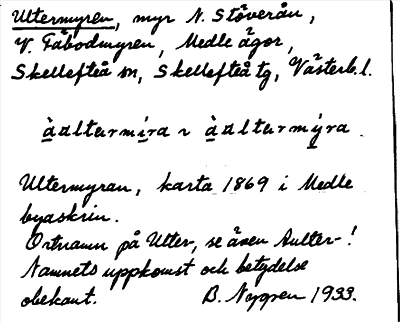 Ultermyren, myr N. Stöverån,
V. Fäbodmyren, Medle ägor,
Skellefteå sn, Skellefteå tg, Västerb.l.
àaltərmíra ~ àaltərmýra.
Ultermyran, karta 1869 i Medle
byaskrin.
Ortnamn på Ulter-, se även Aulter-!
Namnets uppkomst och betydelse
obekant. B. Nygren 1933.